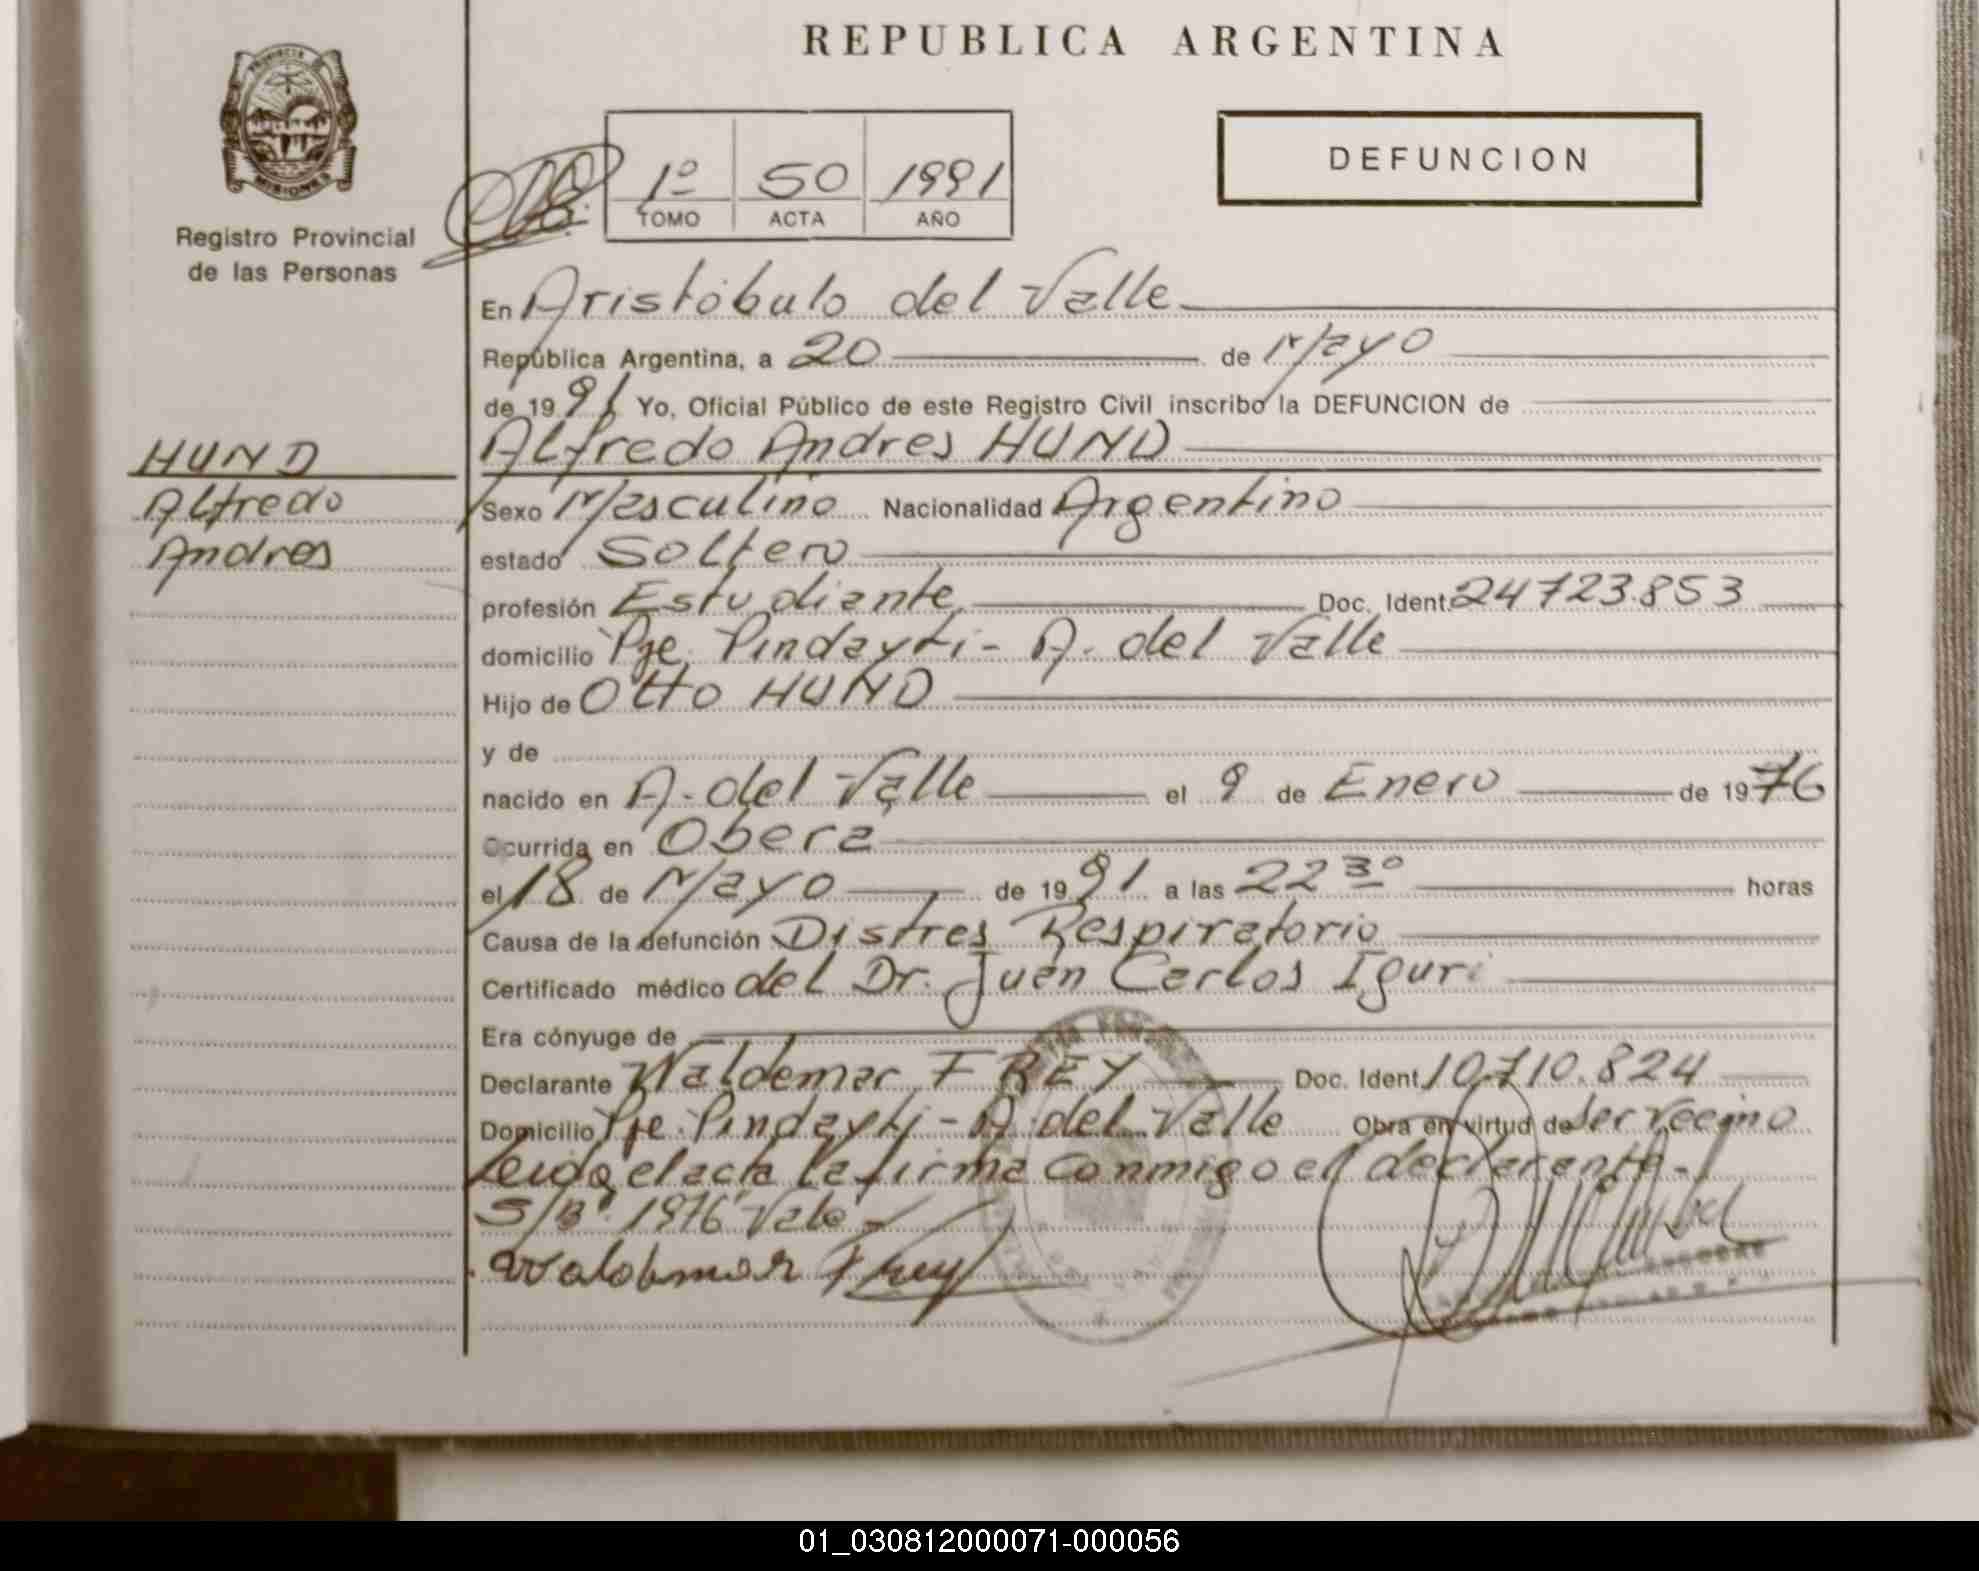 REPUBLICA ARGENTINA
PROVINCIA DE
MISIONES
Registro Provincial
de las Personas
1º 50 1991
TOMO ACTA AÑO
DEFUNCION
En Aristóbulo del Valle
República Argentina, a 20 de Mayo
de 1991 Yo, Oficial Público de este Registro Civil inscribo la DEFUNCION de
HUND
Alfredo
Andres
Alfredo Andres HUND
Sexo Masculino Nacionalidad Argentino
estado Soltero
profesión Estudiante Doc. Ident. 24723.853
domicilio Pje. Pindayti - A. del Valle
Hijo de Otto HUND
y de
nacido en A. del Valle el 9 de Enero de 1976
Ocurrida en Oberá
el 18 de Mayo de 1991 a las 22 30 horas
Causa de la defunción Distres Respiratorio
Certificado médico del Dr. Juan Carlos Iguri
Era cónyuge de
Declarante Waldemar FREY Doc. Ident. 10.710.824
Domicilio Pje. Pindayti - A. del Valle Obra en virtud de ser vecino
Leida el acta la firma conmigo el declarante.-
S/B. "1976" Vale
Waldemar Frey
01_030812000071-000056